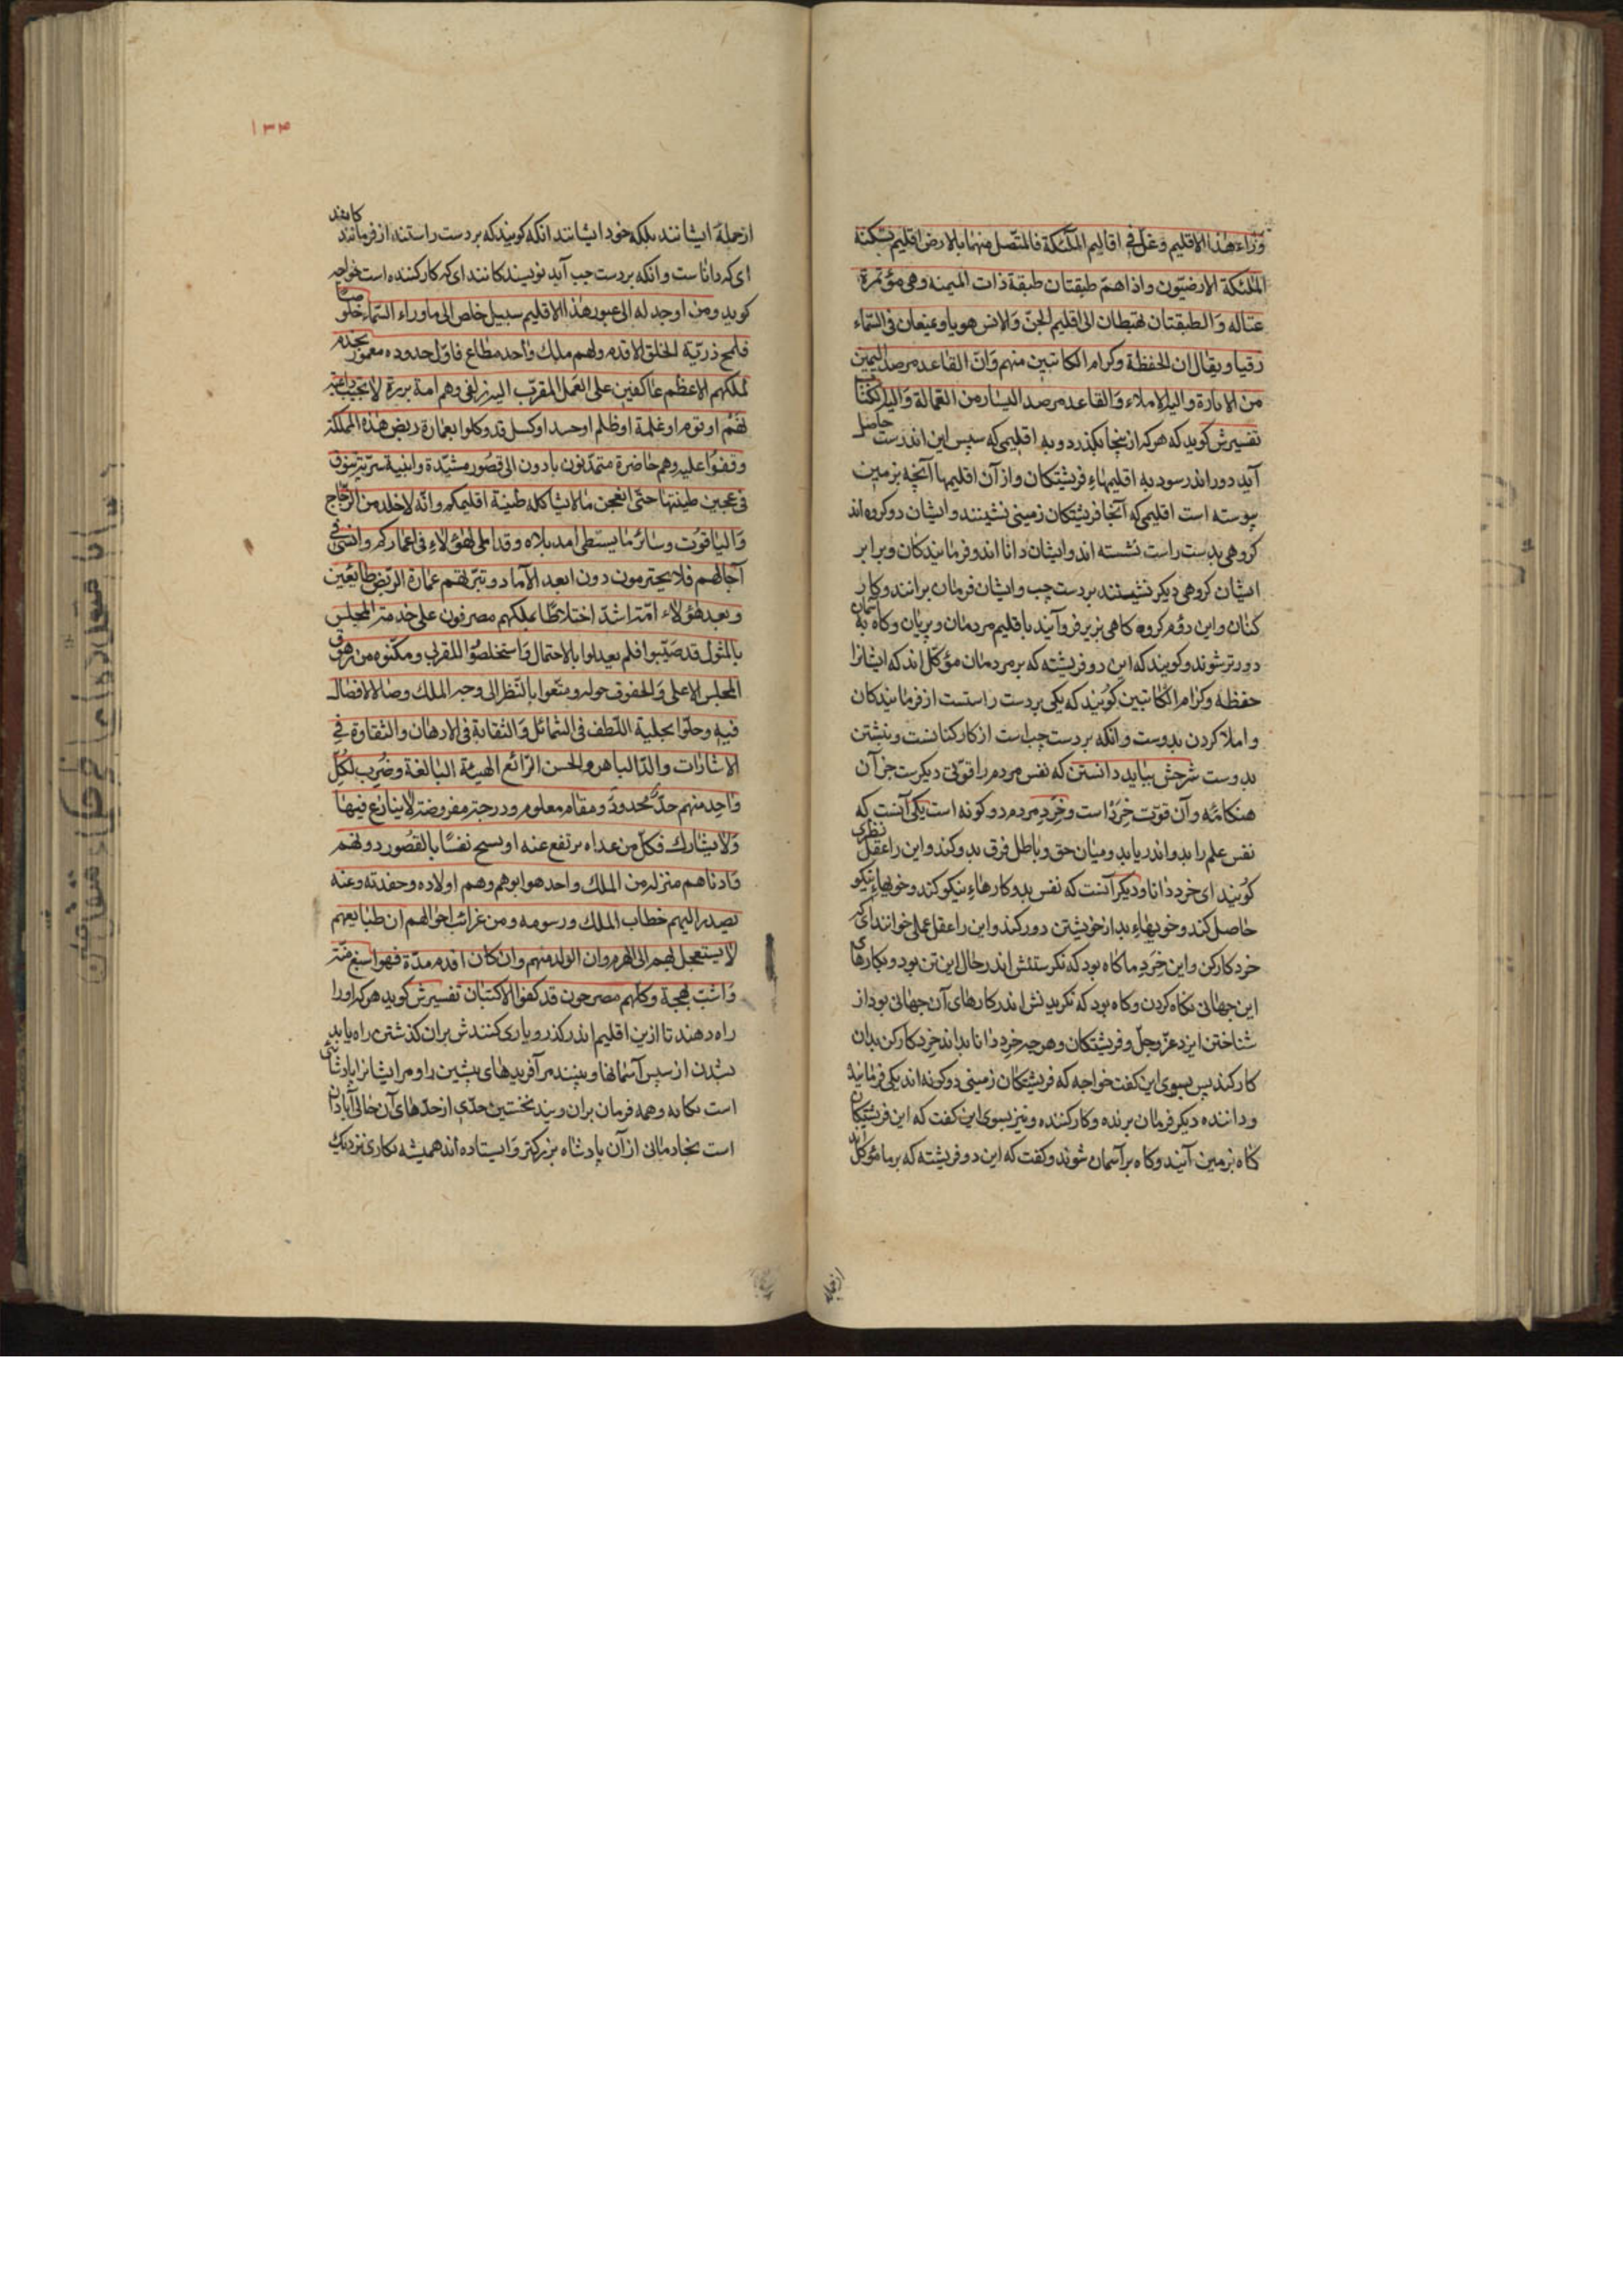 وراء هذا الاقلیم وغل فی اقالیم الملئکة فالمتصل منها بالارض اقلیم تسکنه
الملئکة الارضیون واذا هم طبقتان طبقة ذات المیمنه وهی مؤتمرة
عماله والطبقتان تهبطان الی اقلیم الجن والانس هویا وتمنعان فی السماء
رقیا ویقال ان الحفظة وکرام الکاتبین منهم وان القاعد مرصد الیمین
من الاماره والیه الاملاء والقاعد مرصد الیسار من العمالة والیه الکتاب
تفسیرش کوید که هر که ازینجا بکذرد و به اقلیمی که سپس این اندرست حاصل
آید دور اندر سود به اقلیمهاء فریشتکان واز آن اقلیمها آنچه بزمین
پیوسته است اقلیمی که آنجا فریشتکان زمینی نشینند وایشان دو کروه اند
کروهی بدست راست نشسته اند وایشان دانا اند وفرمایندکان وبرابر
ایشان کروهی دیکر نشینند بر دست چپ وایشان فرمان برانند وکار
کنان واین دؤم کروه کاهی بزیر فرو آیند باقلیم مردمان وپریان وکاه به آسمان
دورتر شوند وکویند که این دو فریشته که بر مردمان مؤکل اند که ایشانرا
حفظه وکرام الکاتبین کویند که یکی بر دست راستست از فرمایندکان
واملا کردن بدوست وانکه بر دست چپ است از کارکنانست ونبشتن
بدوست شرحش بباید دانستن که نفس مردم را قوتی دیکرست جز آن
هنکامه وآن قوت خرد است وخرد مردم دو کونه است یکی آنست که
نفس علم را بدو اندر یابد ومیان حق وباطل فرق بدو کند واین را عقل نظری
کویند ای خرد دانا ودیکر آنست که نفس بدو کارهاء نیکو کند وخویهاء نیکو
حاصل کند وخویهاء بد از خویشتن دور کند واین را عقل عملی خوانند ای که
خرد کارکن واین خرد ما کاه بود که نکرستنش اندر حال این تن بود وبکارهای
این جهانی نکاه کردن وکاه بود که نکریدنش اندر کارهای آن جهانی بود از
شناختن ایزد عز وجل وفریشتکان وهر چه خرد دانا بداند خرد کارکن بدان
کار کند پس بسوی این کفت خواجه که فریشتکان زمینی دو کونه اند یکی فرمانده
وداننده دیکر فرمان برنده وکار کننده ونیز بسوی این کفت که این فریشتکان
کاه بزمین آیند وکاه بر آسمان شوند وکفت که این دو فریشته که بر ما مؤکل اند
ازجمله
۱۳۴
ازجملهٔ ایشانند بلکه خود ایشانند انکه کویند که بر دست راستند از فرمانند کانند
ای که داناست وانکه بر دست چپ آید نویسندکانند ای که کار کننده است خواجه
کوید ومن اوجد له الی عبور هذا الاقلیم سبیل خاص الی ماوراء السماء خلوصا
فلمح ذریّة الخلق الاقدم ولهم ملک واحد مطاع فاول حدوده معمور بخدم
لملکهم الاعظم عاکفین علی العمل المقرب الیه زلفی وهم امة بررة لا تجیب داعیة
نهم او توم او غلمة او ظلم او حسد او کسل قد وکلوا بعمارة ربض هذه المملکة
وقفوا علیه وهم حاضرة متمدنون یاوون الی قصور مشیّدة وابنیة سریّة تنوق
فی عجین طینتها حتی انعجن مالا یشاکله طینة اقلیمکم وانه لاجلد من الزجاج
والیاقوت وسائر ما یستبطی امد بلاه وقد املی لهؤلاء فی اعمارکم وانسئ فی
آجالهم فلا یحترمون دون ابعد الآماد و تیرتهم عمارة الربض طایعین
وبعد هؤلاء امة اشد اختلاطا بملکهم مصرفون علی خدمة المجلس
بالمثول قد صینوا فلم یعدلوا بالاحتمال واستخلصوا للقربی ومکنوا من رموق
المجلس الاعلی والحفوف حوله ومتعوا بالنظر الی وجه الملک وصالا لا فصال
فیه وحلوا بحلیة اللطف فی الشمائل والثقافة فی الاذهان والنهایة فی
الاشارات والدا الباهر والحسن الرائع الهیئة البالغة وضرب لکل
واحد منهم حد محدود ومقام معلوم ودرجة مفروضة لا ینازع فیها
ولا یشارک فکل من عداه یرتفع عنه او یسمح نفسا بالقصور دونهم
وادناهم منزلة من الملک واحد هو ابوهم وهم اولاده وحفدته وعنه
یصدر الیهم خطاب الملک ورسومه ومن غرائب احوالهم ان طبایعهم
لا یستعجل بهم الی الهرم وان الولد منهم وان کان اقدم مدة فهو اسبغ منة
واشب بهجة وکلهم مصحرون قد کفوا الاکتنان تفسیرش کوید هر که او را
راه دهند تا ازین اقلیم اندر کذرد ویاری کنندش بران کذشتن راه یابد
بشدن از سپس آسمانها وببیند مر آفریدهای پیشین را ومر ایشانرا پادشائی
است یکانه وهمه فرمان بران ویند نخستین حدی از حدهای آن جای آبادان
است بخادمانی از آن پادشاه بزرکتر وایستاده اند همیشه بکاری نزدیک